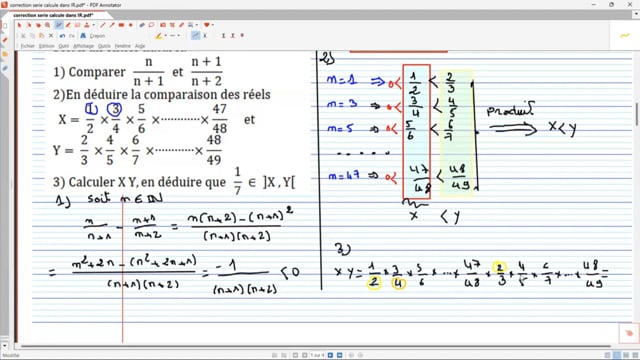 correction serie calcule dans IR.pdf* - PDF Annotator
correction serie calcule dans IR.pdf*
1) Comparer n/(n+1) et (n+1)/(n+2)
2)En déduire la comparaison des réels
X = 1/2 × 3/4 × 5/6 ×···········× 47/48 et
Y = 2/3 × 4/5 × 6/7 ×···········× 48/49
3) Calculer X Y, en déduire que 1/7 ∈ ]X,Y[
1) soit n ∈ IN
n/(n+1) - (n+1)/(n+2) = (n(n+2)-(n+1)²)/((n+1)(n+2))
= (n²+2n-(n²+2n+1))/((n+1)(n+2)) = -1/((n+1)(n+2)) < 0
2)
n=1 ⇒ 0< 1/2 < 2/3
n=3 ⇒ 0< 3/4 < 4/5
n=5 ⇒ 0< 5/6 < 6/7
.....
n=47 ⇒ 0< 47/48 < 48/49
produit ⇒ X<Y
X < Y
3)
XY = 1/2 × 3/4 × 5/6 × ... × 47/48 × 2/3 × 4/5 × 6/7 × ... × 48/49 =
1 sur 4